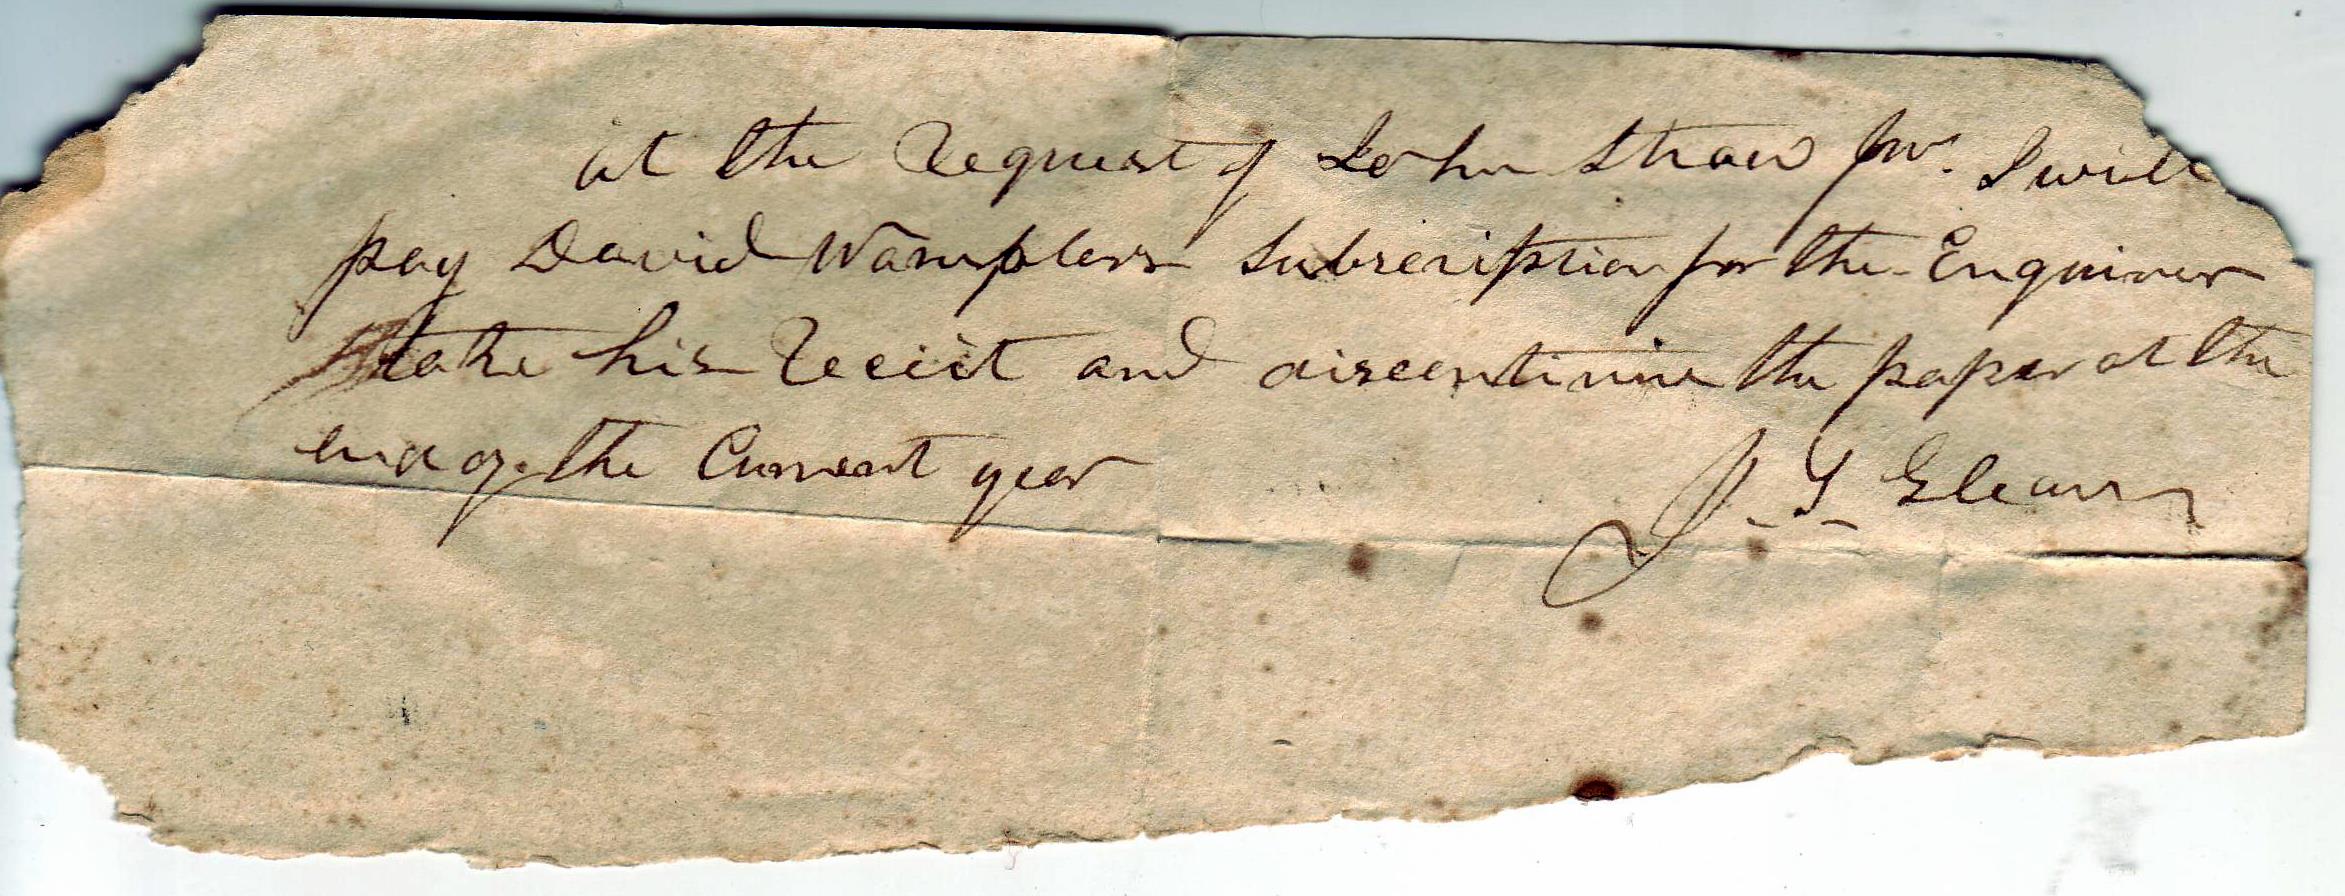 at the Request of John Straw Jnr. I will
pay David Wamplers Subscription for the Enquirer
take his Reciit and discontinue the paper at the
end of the Current year
J. G.